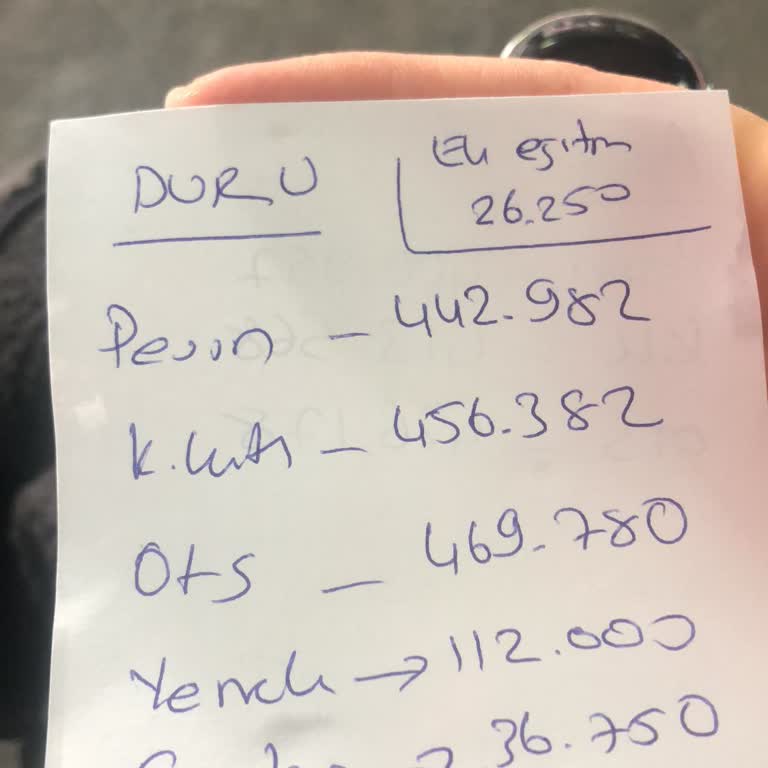 DURU
Ek eğitm
26.250
Peşin - 442.982
K.kartı - 456.382
Ots - 469.780
Yemek → 112.000
36.750